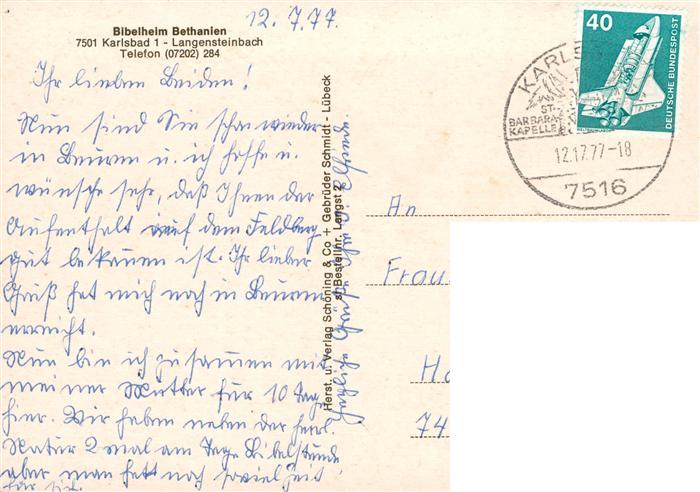 12.7.77.
Bibelheim Bethanien
7501 Karlsbad 1 - Langensteinbach
Telefon (07202) 284
Ihr lieben Beiden!
Nun sind Sie schon wieder
in Beuren u. ich hoffe u.
wünsche sehr, daß Ihnen der
Aufenthalt auf dem Feldberg
gut bekommen ist. Ihr lieber
Gruß hat mich noch in Beuren
erreicht.
Nun bin ich zusammen mit
meiner Mutter für 10 Tage
hier. Wir haben neben der herrl.
Natur 2 mal am Tage Bibelstunde
aber man hat noch soviel Zeit
für sich.
Herzliche Grüße
Herst. u. Verlag Schöning & Co + Gebrüder Schmidt - Lübeck
Bestellnr. Langst 2
40
DEUTSCHE BUNDESPOST
KARLS
ST.
BARBARA-
KAPELLE
12.17.77-18
7516
An
Frau
74